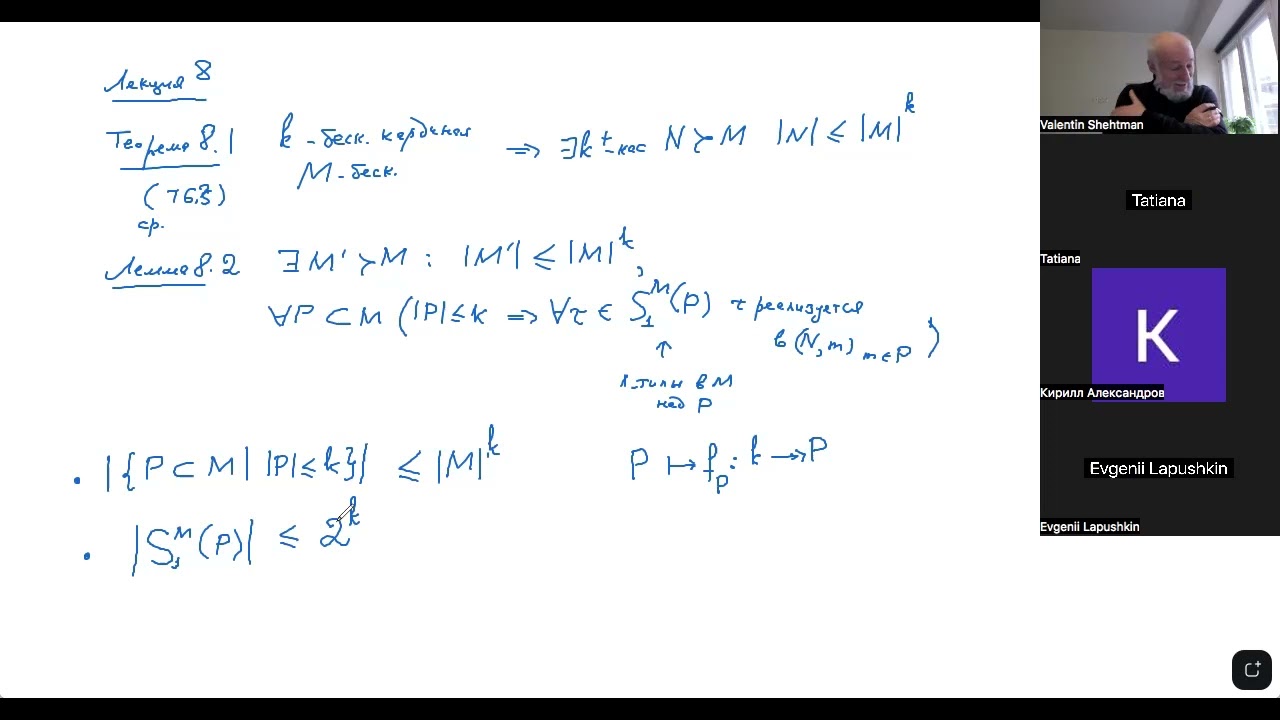 Лекция 8
Теорема 8.1 k - беск. кардинал ⇒ ∃k⁺-нас N ≻ M |N| ≤ |M|^k
M - беск.
(Т6.3)
ср.
Лемма 8.2 ∃M' ≻ M : |M'| ≤ |M|^k,
∀P ⊂ M (|P| ≤ k ⇒ ∀τ ∈ S₁^M(P) τ реализуется
в (N, m)_{m∈P} )
↑
1-типы в M
над P
• |{P ⊂ M | |P| ≤ k}| ≤ |M|^k P ↦ f_P : k ↠ P
• |S₁^M(P)| ≤ 2^k
Valentin Shehtman
Tatiana
Tatiana
K
Кирилл Александров
Evgenii Lapushkin
Evgenii Lapushkin